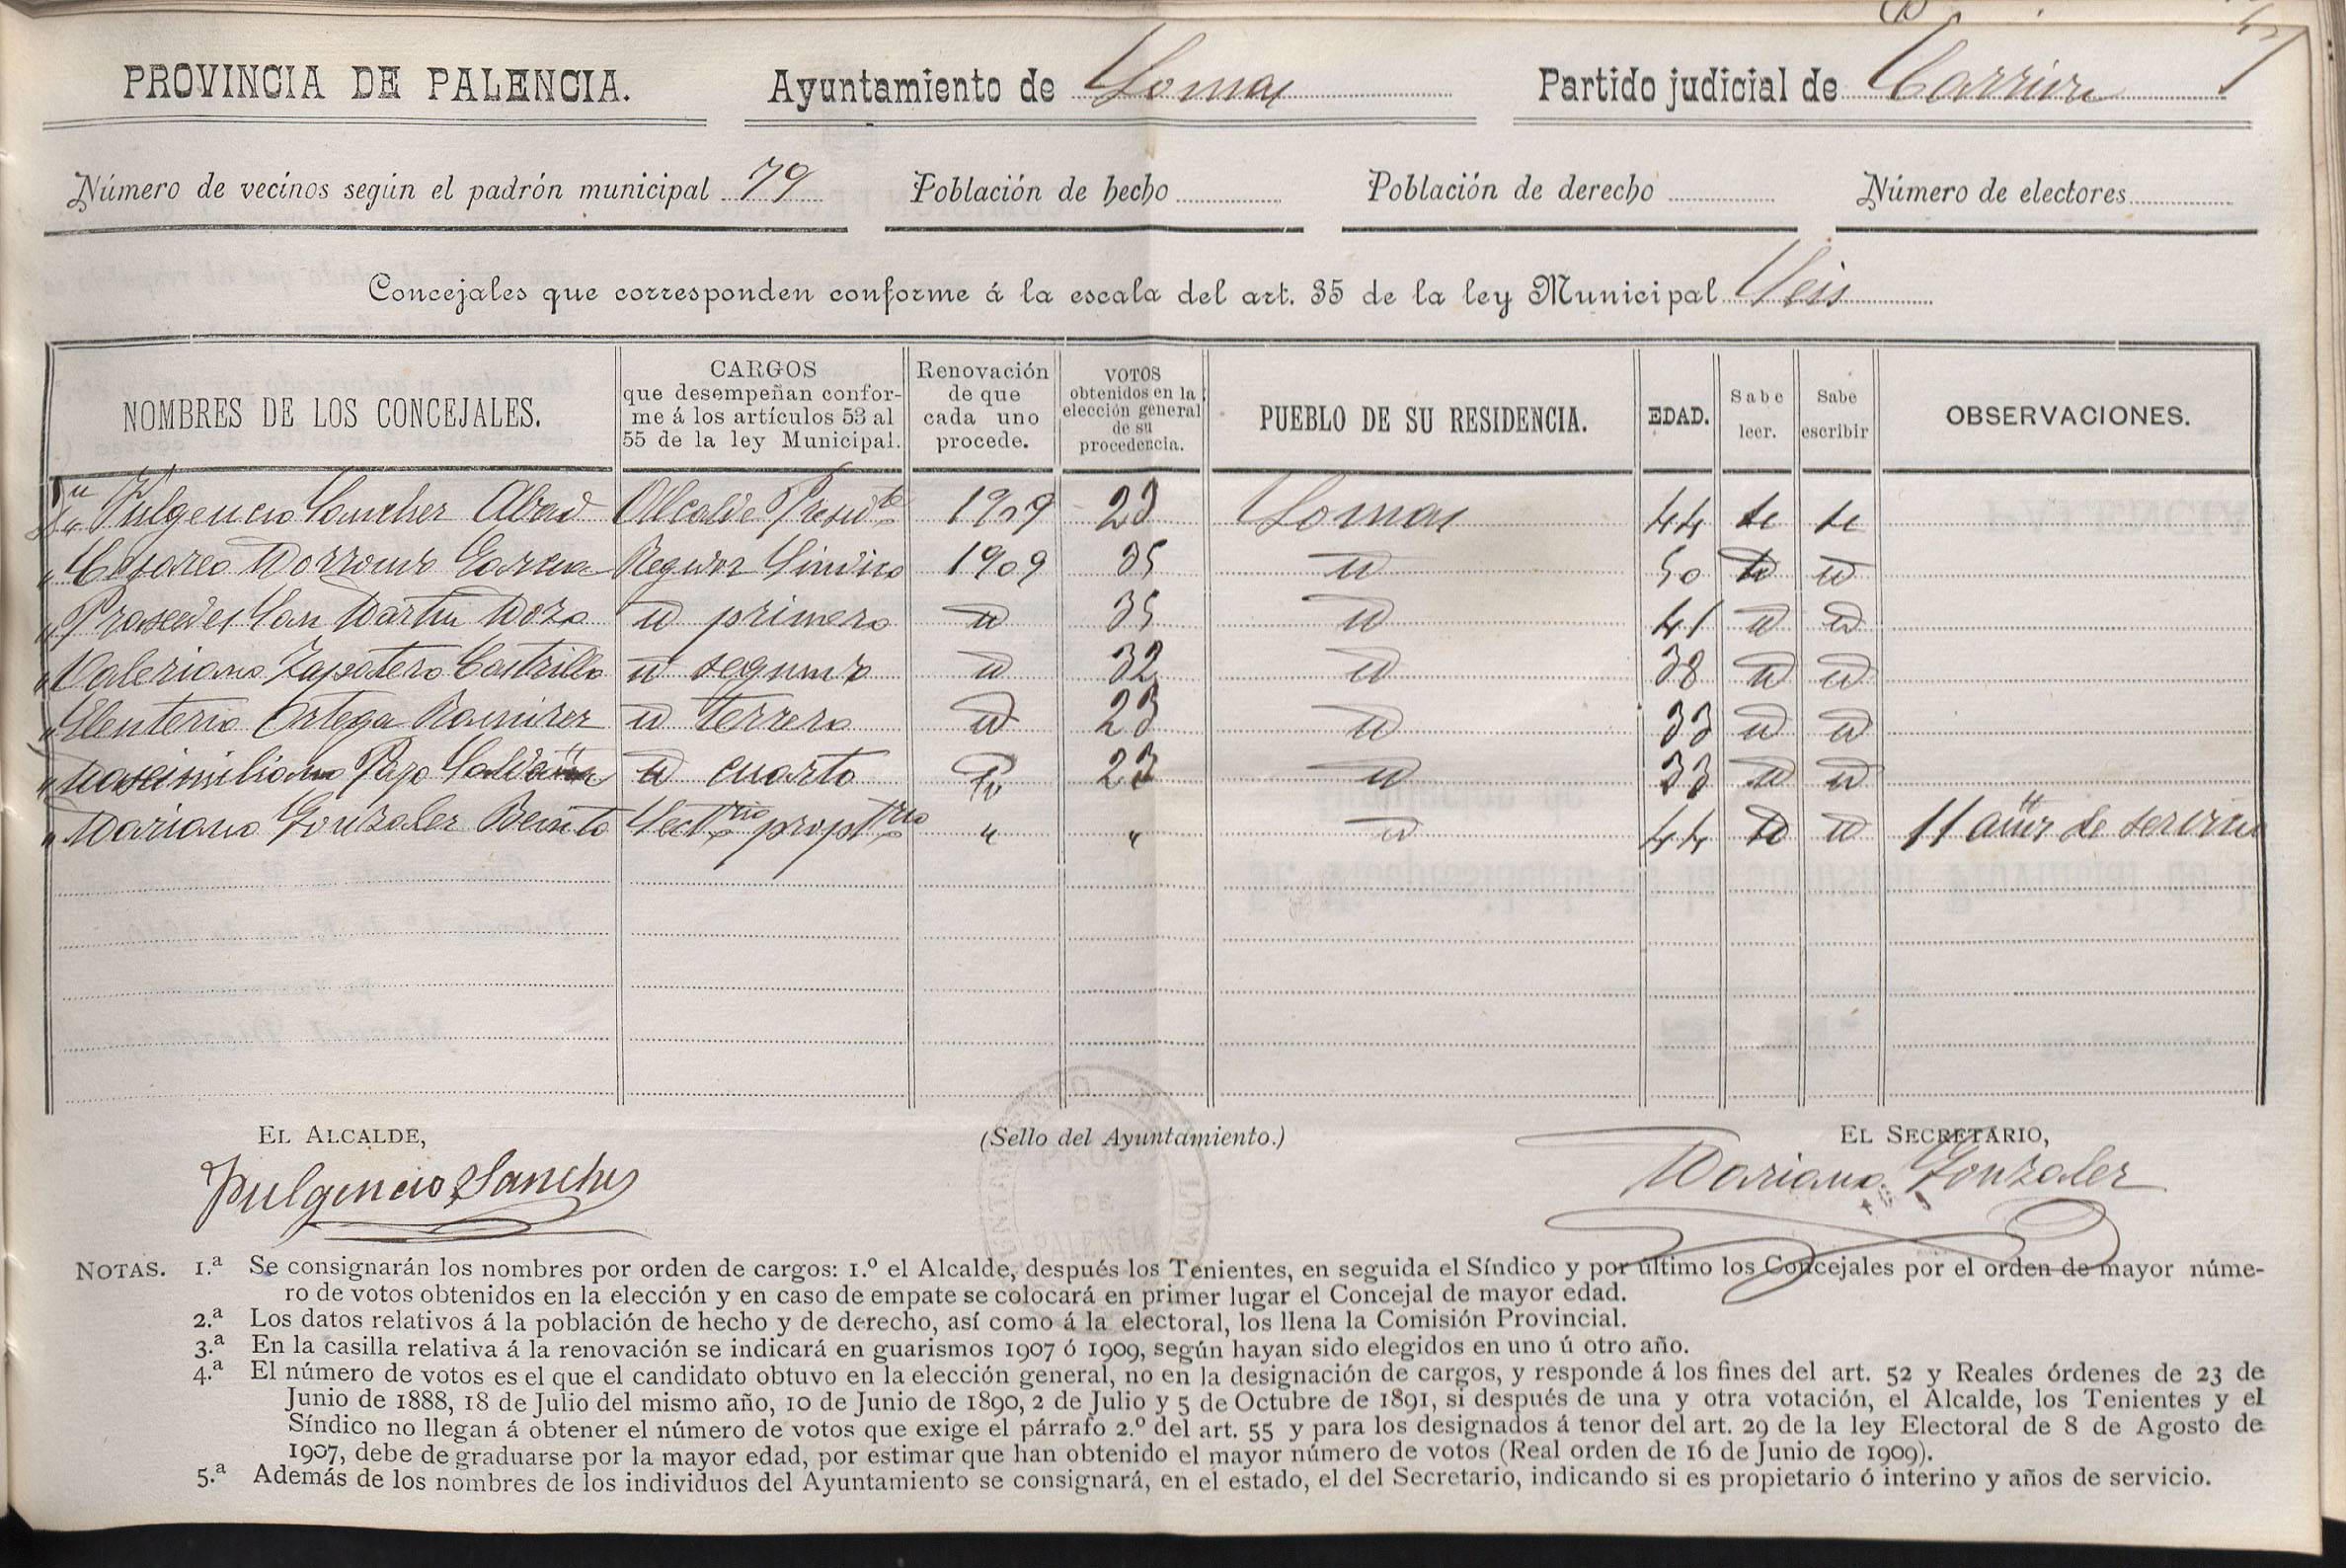 PROVINCIA DE PALENCIA. Ayuntamiento de Lomas Partido judicial de Carrion
Número de vecinos según el padrón municipal 79 Población de hecho Población de derecho Número de electores
Concejales que corresponden conforme á la escala del art. 35 de la ley Municipal Seis
NOMBRES DE LOS CONCEJALES. CARGOS que desempeñan conforme á los artículos 53 al 55 de la ley Municipal. Renovación de que cada uno procede. VOTOS obtenidos en la elección general de su procedencia. PUEBLO DE SU RESIDENCIA. EDAD. Sabe leer. Sabe escribir OBSERVACIONES.
Dn Fulgencio Sanchez Abad Alcalde Presidte 1909 23 Lomas 44 si si
" Cesareo Morrondo Garcia Regidor Sindico 1909 35 id 50 id id
" Praxedes San Martin Mozo id primero id 35 id 41 id id
" Valeriano Zapatero Castrillo id segundo id 32 id 38 id id
" Eleuterio Ortega Ramirez id tercero id 23 id 33 id id
" Maximiliano Pozo Saldaña id cuarto id 23 id 33 id id
" Mariano Gonzalez Benito Sectrio proptrio " " id 44 id id 11 años de servicio
EL ALCALDE, (Sello del Ayuntamiento.) EL SECRETARIO,
Fulgencio Sanchez Mariano Gonzalez
PROV DE PALENCIA
NOTAS. 1.ª Se consignarán los nombres por orden de cargos: 1.º el Alcalde, después los Tenientes, en seguida el Síndico y por último los Concejales por el orden de mayor núme-
ro de votos obtenidos en la elección y en caso de empate se colocará en primer lugar el Concejal de mayor edad.
2.ª Los datos relativos á la población de hecho y de derecho, así como á la electoral, los llena la Comisión Provincial.
3.ª En la casilla relativa á la renovación se indicará en guarismos 1907 ó 1909, según hayan sido elegidos en uno ú otro año.
4.ª El número de votos es el que el candidato obtuvo en la elección general, no en la designación de cargos, y responde á los fines del art. 52 y Reales órdenes de 23 de
Junio de 1888, 18 de Julio del mismo año, 10 de Junio de 1890, 2 de Julio y 5 de Octubre de 1891, si después de una y otra votación, el Alcalde, los Tenientes y el
Síndico no llegan á obtener el número de votos que exige el párrafo 2.º del art. 55 y para los designados á tenor del art. 29 de la ley Electoral de 8 de Agosto de
1907, debe de graduarse por la mayor edad, por estimar que han obtenido el mayor número de votos (Real orden de 16 de Junio de 1909).
5.ª Además de los nombres de los individuos del Ayuntamiento se consignará, en el estado, el del Secretario, indicando si es propietario ó interino y años de servicio.